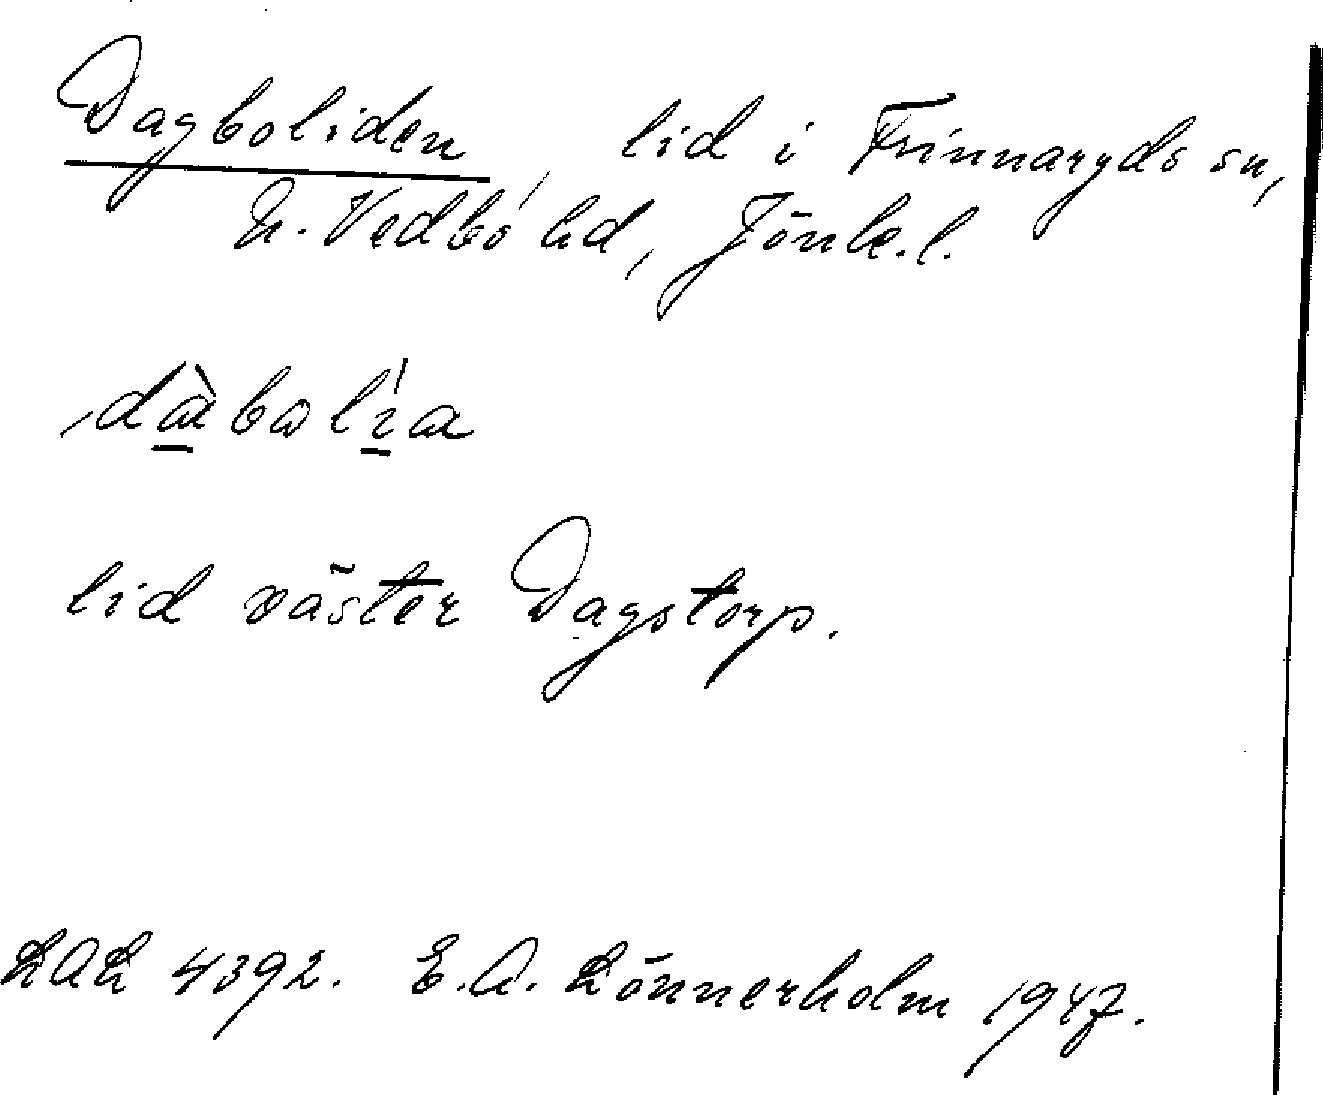 Dagboliden, lid i Frinnaryds sn,
N. Vedbo hd, Jönk. l.
dàbolía
lid väster Dagstorp.
LAL 4392. E. A. Lönnerholm 1947.